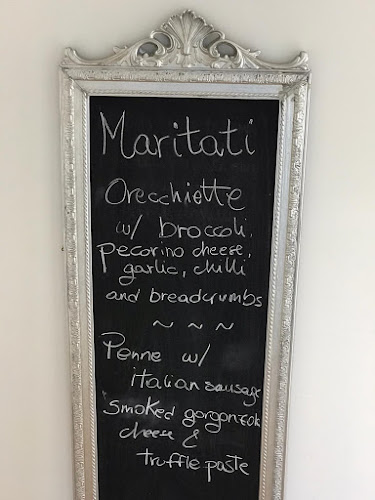 Maritati
Orecchiette
w/ broccoli,
pecorino cheese,
garlic, chilli
and breadcrumbs
~ ~ ~
Penne w/
italian sausage
smoked gorgonzola
cheese &
truffle paste